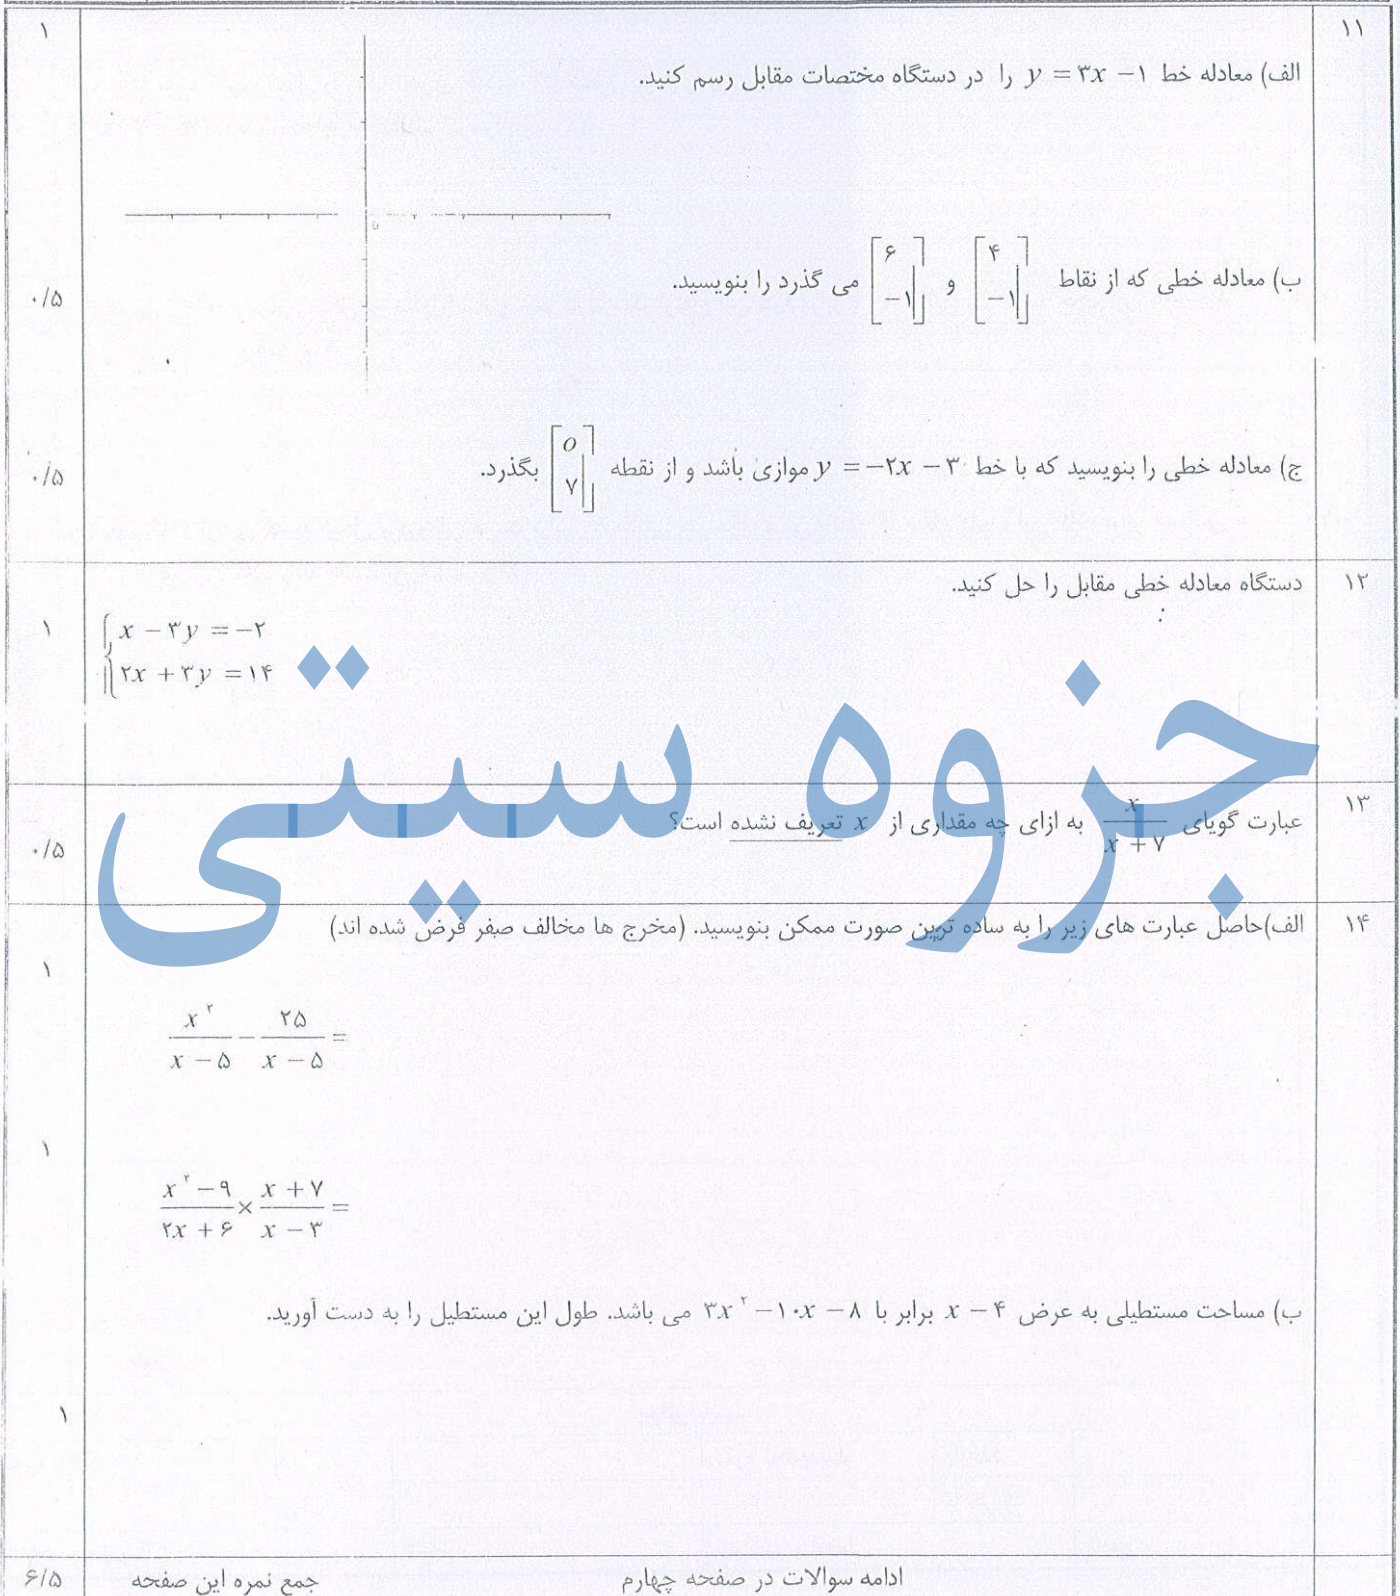 ۱۱
الف) معادله خط y = ۳x − ۱ را در دستگاه مختصات مقابل رسم کنید.
۱
ب) معادله خطی که از نقاط [۴ −۱] و [۶ −۱] می گذرد را بنویسید.
۰/۵
ج) معادله خطی را بنویسید که با خط y = −۲x − ۳ موازی باشد و از نقطه [0 ۷] بگذرد.
۰/۵
۱۲
دستگاه معادله خطی مقابل را حل کنید.
x − ۳y = −۲
۲x + ۳y = ۱۴
۱
جزوه سیتی
۱۳
عبارت گویای x / x + ۷ به ازای چه مقداری از x تعریف نشده است؟
۰/۵
۱۴
الف)حاصل عبارت های زیر را به ساده ترین صورت ممکن بنویسید. (مخرج ها مخالف صفر فرض شده اند)
۱
x² / x − ۵ − ۲۵ / x − ۵ =
۱
x² − ۹ / ۲x + ۶ × x + ۷ / x − ۳ =
ب) مساحت مستطیلی به عرض x − ۴ برابر با ۳x² − ۱۰x − ۸ می باشد. طول این مستطیل را به دست آورید.
۱
ادامه سوالات در صفحه چهارم
جمع نمره این صفحه
۶/۵